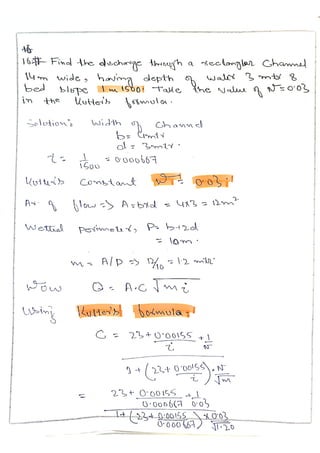 16
16.# Find the discharge through a rectangular Channel
14m wide, having depth of water 3 mtr &
bed slope 1 in 1500! Take the value of N=0.03
in the kutter's formula.
Solution:- Width of Channel
b = 4mtr
d = 3mtr.
i = 1/1500 = 0.000667
Kutter's Constant N = 0.03;
Ar of flow => A = b×d = 4×3 = 12m²
Wetted perimeter, P = b+2d
= 10m.
m = A/P => 12/10 = 1.2 mtr
Now Q = A.C √mi
Using Kutter's formula:
C = 23 + 0.00155/i + 1/N
1 + (23 + 0.00155/i) × N/√m
= 23 + 0.00155/0.000667 + 1/0.03
1 + (23 + 0.00155/0.000667) × 0.03/√1.20